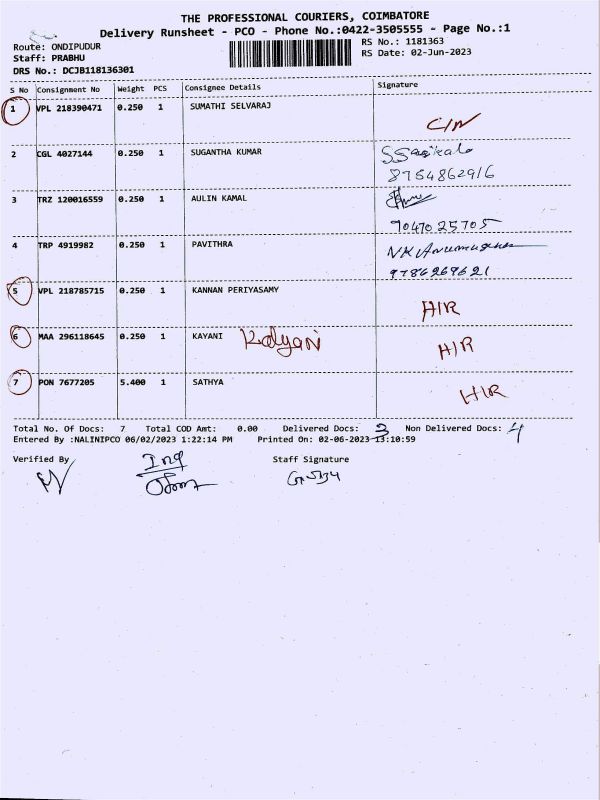 THE PROFESSIONAL COURIERS, COIMBATORE
Delivery Runsheet - PCO - Phone No.:0422-3505555 - Page No.:1
Route: ONDIPUDUR
RS No.: 1181363
Staff: PRABHU
RS Date: 02-Jun-2023
DRS No.: DCJB118136301
S No Consignment No Weight PCS Consignee Details Signature
1 VPL 218390471 0.250 1 SUMATHI SELVARAJ
C/N
2 CGL 4027144 0.250 1 SUGANTHA KUMAR
S Sasikala
8754862916
3 TRZ 120016559 0.250 1 AULIN KAMAL
9047025705
4 TRP 4919982 0.250 1 PAVITHRA
9786269621
5 VPL 218785715 0.250 1 KANNAN PERIYASAMY
H/R
6 MAA 296118645 0.250 1 KAYANI Kalyani
H/R
7 PON 7677205 5.400 1 SATHYA
H/R
Total No. Of Docs: 7 Total COD Amt: 0.00 Delivered Docs: 3 Non Delivered Docs: 4
Entered By :NALINIPCO 06/02/2023 1:22:14 PM Printed On: 02-06-2023 13:10:59
Verified By Staff Signature